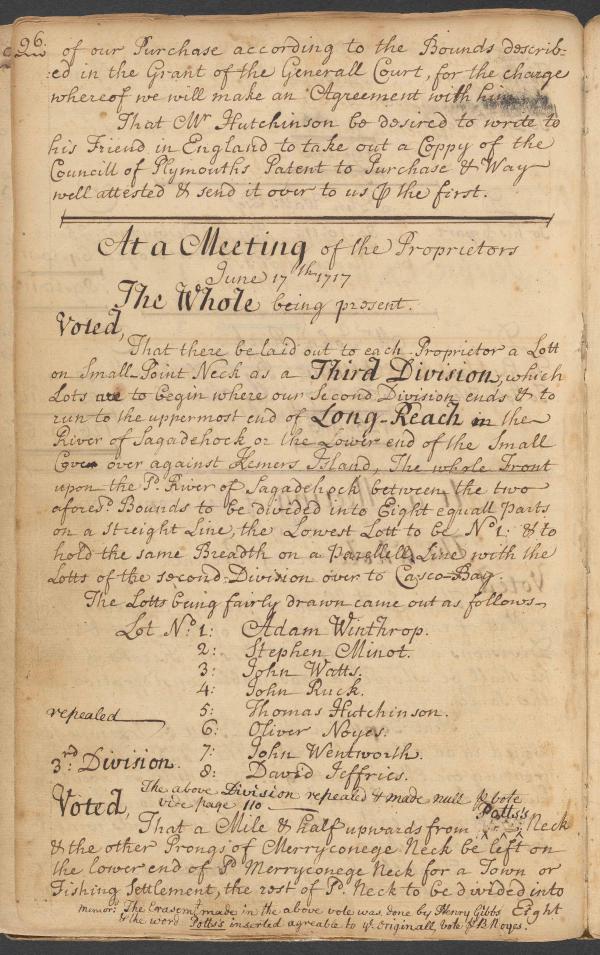 96.
of our Purchase according to the Bounds describ=
=ed in the Grant of the Generall Court, for the charge
whereof we will make an Agreement with him
That Mr Hutchinson be desired to write to
his Friend in England to take out a Coppy of the
Councill of Plymouths Patent to Purchase & Way
well attested & send it over to us ꝑ the first.
At a Meeting of the Proprietors
June 17th 1717
The Whole being present.
Voted,
That there be laid out to each Proprietor a Lott
on Small-Point Neck as a Third Division, which
Lots are to begin where our Second Division ends & to
run to the uppermost end of Long-Reach in the
River of Sagadehock or the Lower end of the Small
Coven over against Kemers Island, The whole Front
upon the sd. River of Sagadehock between the two
aforesd. Bounds to be divided into Eight equall parts
on a Streight Line, the Lowest Lott to be No 1: & to
hold the same Breadth on a Parellell Line with the
Lotts of the second Division over to Casco-Bay.
The Lotts being fairly drawn came out as follows
Lot No 1: Adam Winthrop.
2: Stephen Minot.
3: John Watts.
4: John Ruck.
repealed 5: Thomas Hutchinson.
6: Oliver Noyes.
3rd Division. 7: John Wentworth.
8: David Jeffries.
The above Division repealed & made null ꝑ vote
vide page 110
Voted, Potts's
That a Mile & half upwards from Neck
& the other Prongs of Merryconege Neck be left on
the lower end of sd Merryconege Neck for a Town or
Fishing Settlement, the rest of sd. Neck to be divided into
Eight
memor: The Erasemt made in the above vote was done by Henry Gibbs
& the word Potts's inserted agreable to ye. originall vote of B Noyes.